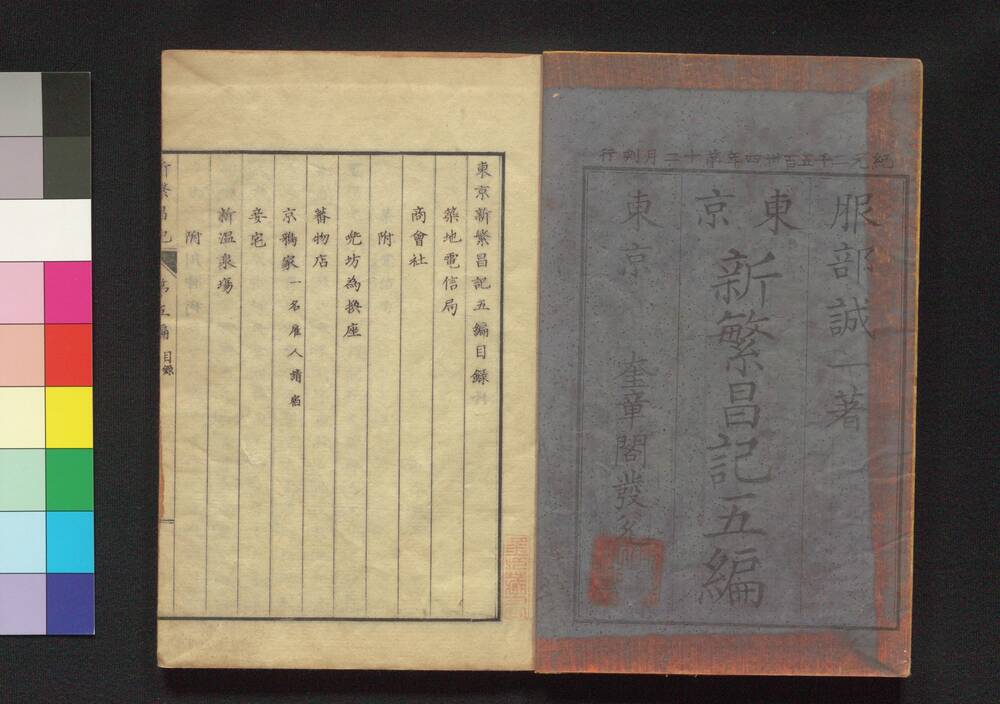 紀元二千五百卅四年第十二月刻行
服部誠一著
東京
新繁昌記五編
東京 奎章閣發兌
東京新繁昌記五編目録
築地電信局
商會社
附
兜坊為換座
蕃物店
京鴉家一名雇人請宿
妾宅
新温泉塲
附
新繁昌記 第五編 目録